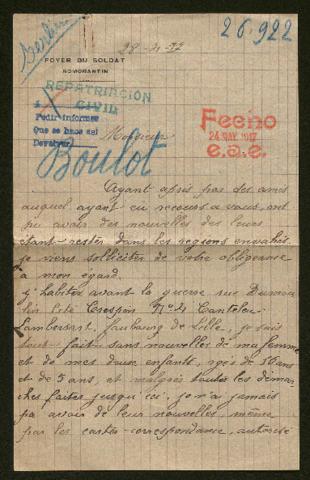 26.922
28-4-17
FOYER DU SOLDAT
ROMORANTIN
REPATRIACIÓN
CIVIL
Pedir informes
Que se hace así
Monsieur
Boulot
Fecho
24 MAY. 1917
e.a.e.
Ayant appris par des amis
auquel ayant eu recours a vous, ont
pu avoir des nouvelles des leurs
étant restés dans les régions envahis
je viens solliciter de votre obligeance
a mon égard.
j'habitais avant la guerre rue
cité Crespin No 4 Canteleu
Lambersart, faubourg de Lille, je suis
tout à fait sans nouvelles de ma femme
et de mes deux enfants, agés de 16 ans
et de 5 ans, et malgrés toutes les démar
ches faites jusqu'ici, je n'ai jamais
pu avoir de leur nouvelles, même
par les cartes-correspondance, autorisé